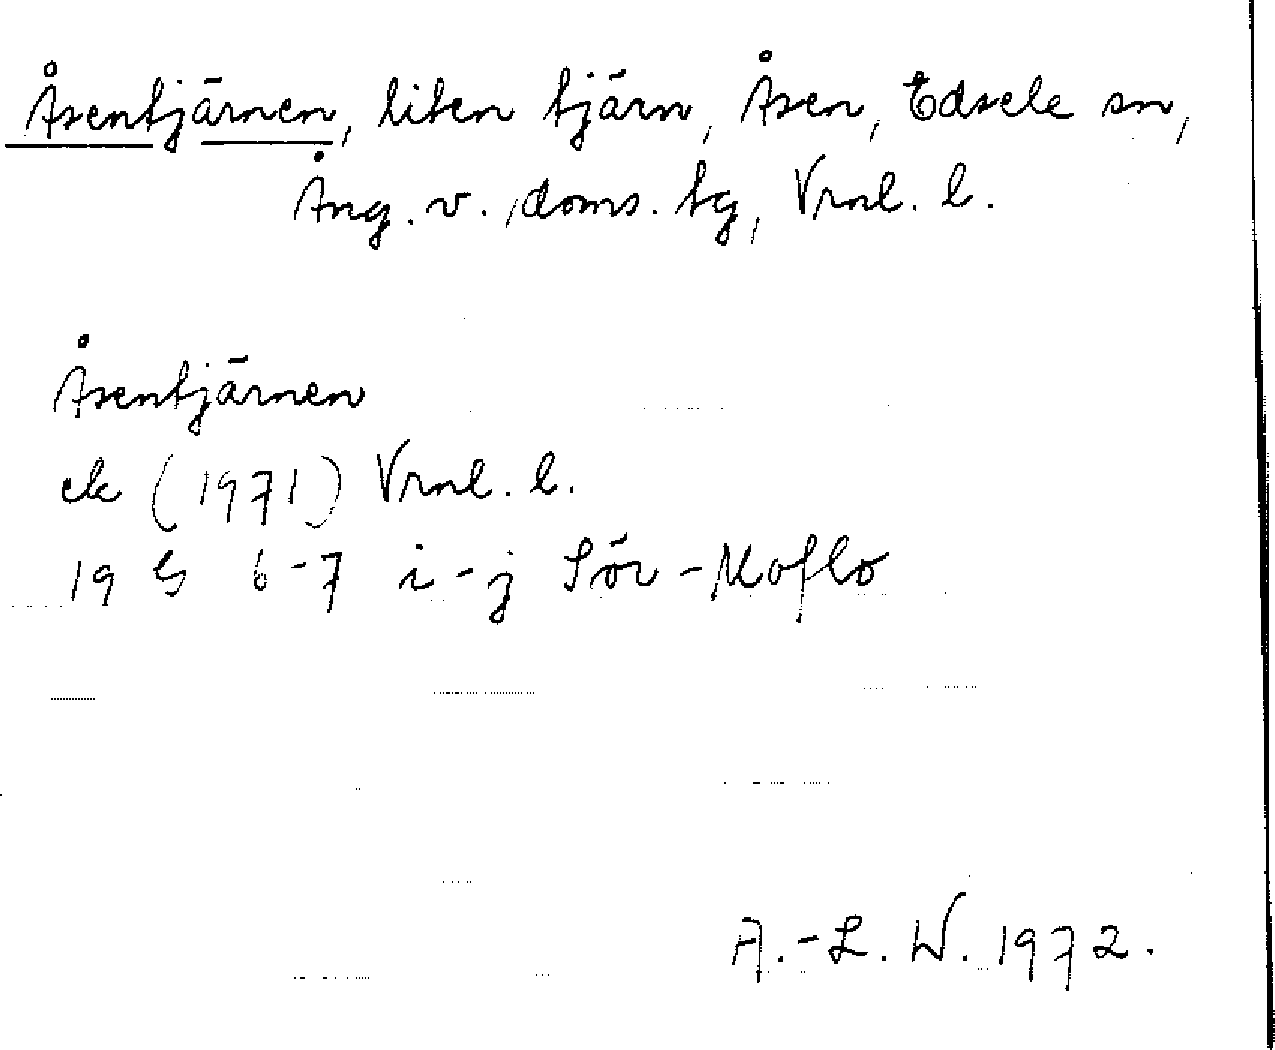 Åsentjärnen, liten tjärn, Åsen, Edsele sn,
Ång. v. doms. tg, Vrnl. l.
Åsentjärnen
ek (1971) Vrnl. l.
19 G 6-7 i-j Sör-Moflo
A.-L. W. 1972.